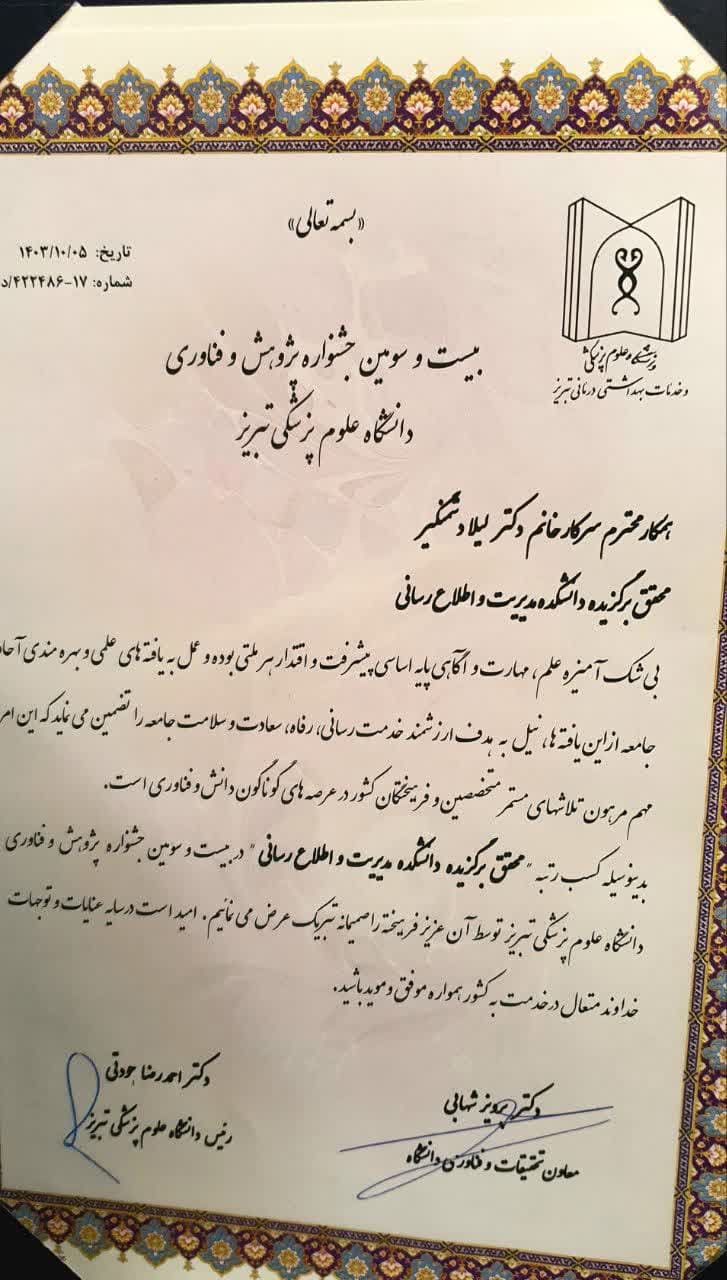 «بسمه تعالی»
تاریخ: ۱۴۰۳/۱۰/۰۵
شماره: ۱۷-۴۲۲۴۸۶/د
دانشگاه علوم پزشکی
و خدمات بهداشتی درمانی تبریز
بیست و سومین جشنواره پژوهش و فناوری
دانشگاه علوم پزشکی تبریز
همکار محترم سرکار خانم دکتر لیلا دشمنگیر
محقق برگزیده دانشکده مدیریت و اطلاع رسانی
بی شک آمیزه علم، مهارت و آگاهی پایه اساسی پیشرفت و اقتدار هر ملتی بوده و عمل به یافته های علمی و بهره مندی آحا
جامعه از این یافته ها، نیل به هدف ارزشمند خدمت رسانی، رفاه، سعادت و سلامت جامعه را تضمین می نماید که این امر
مهم مرهون تلاشهای مستمر متخصصین و فرهیختگان کشور در عرصه های گوناگون دانش و فناوری است.
بدینوسیله کسب رتبه "محقق برگزیده دانشکده مدیریت و اطلاع رسانی" در بیست و سومین جشنواره پژوهش و فناوری
دانشگاه علوم پزشکی تبریز توسط آن عزیز فرهیخته را صمیمانه تبریک عرض می نمائیم. امید است در سایه عنایات و توجهات
خداوند متعال در خدمت به کشور همواره موفق و موید باشید.
دکتر پرویز شهابی
معاون تحقیقات و فناوری دانشگاه
دکتر احمدرضا جودتی
رئیس دانشگاه علوم پزشکی تبریز